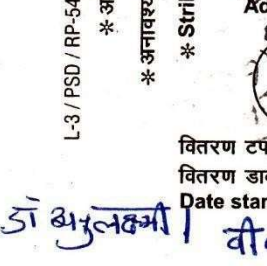 L-3 / PSD / RP-54
* अ
* अनावश्य
* Stri
Ad
वितरण टप
वितरण डाक
Date star
डॉ
वी